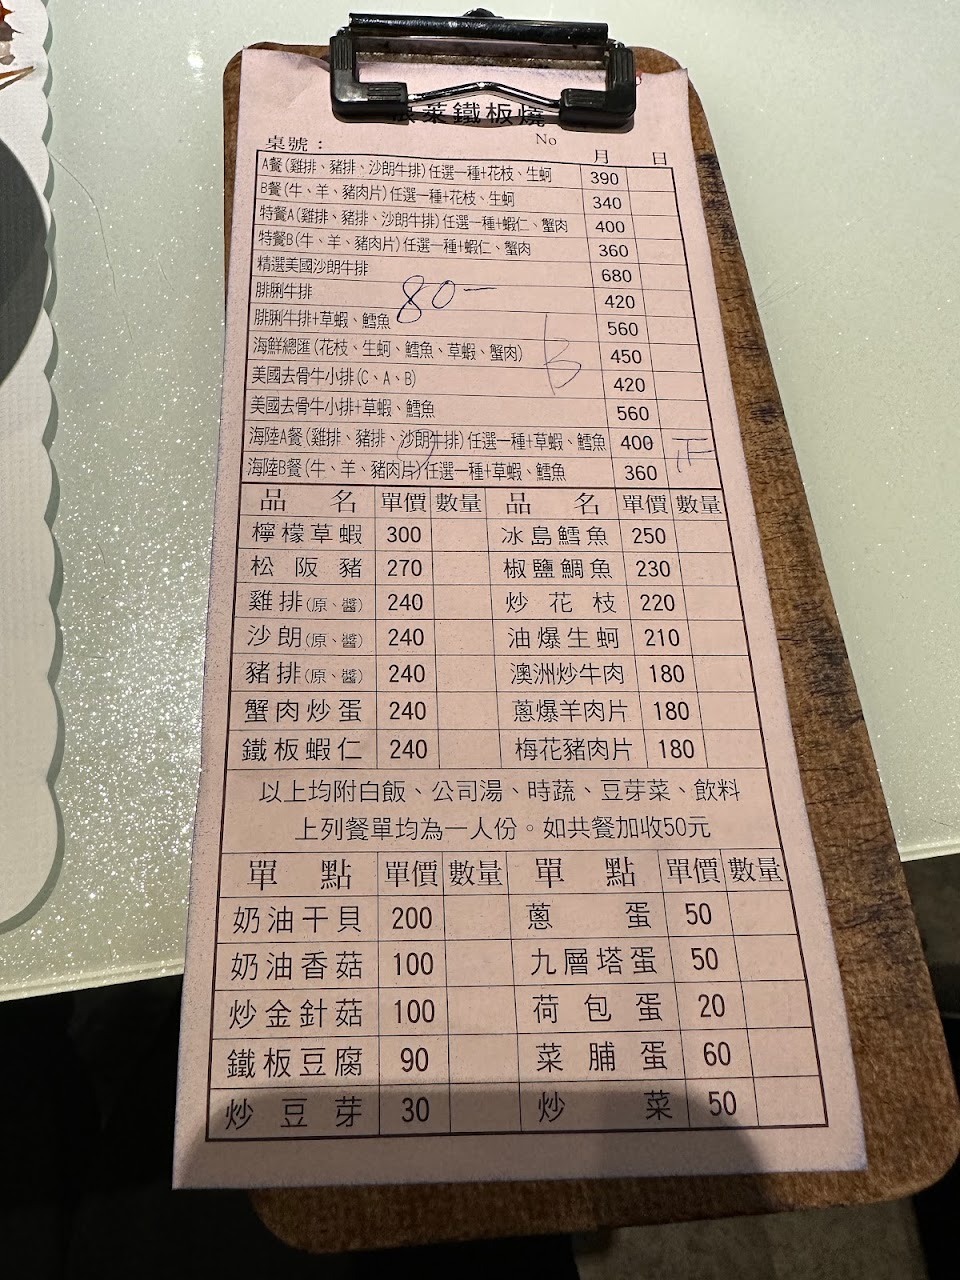 萊鐵板燒
No
桌號： 月 日
A餐(雞排、豬排、沙朗牛排)任選一種+花枝、生蚵 390
B餐(牛、羊、豬肉片)任選一種+花枝、生蚵 340
特餐A(雞排、豬排、沙朗牛排)任選一種+蝦仁、蟹肉 400
特餐B(牛、羊、豬肉片)任選一種+蝦仁、蟹肉 360
精選美國沙朗牛排 680
腓脷牛排 420
80-
腓脷牛排+草蝦、鱈魚 560
海鮮總匯(花枝、生蚵、鱈魚、草蝦、蟹肉) 450
B
美國去骨牛小排(C、A、B) 420
美國去骨牛小排+草蝦、鱈魚 560
海陸A餐(雞排、豬排、沙朗牛排)任選一種+草蝦、鱈魚 400
海陸B餐(牛、羊、豬肉片)任選一種+草蝦、鱈魚 360
品名 單價 數量 品名 單價 數量
檸檬草蝦 300 冰島鱈魚 250
松阪豬 270 椒鹽鯛魚 230
雞排(原、醬) 240 炒花枝 220
沙朗(原、醬) 240 油爆生蚵 210
豬排(原、醬) 240 澳洲炒牛肉 180
蟹肉炒蛋 240 蔥爆羊肉片 180
鐵板蝦仁 240 梅花豬肉片 180
以上均附白飯、公司湯、時蔬、豆芽菜、飲料
上列餐單均為一人份。如共餐加收50元
單點 單價 數量 單點 單價 數量
奶油干貝 200 蔥蛋 50
奶油香菇 100 九層塔蛋 50
炒金針菇 100 荷包蛋 20
鐵板豆腐 90 菜脯蛋 60
炒豆芽 30 炒菜 50